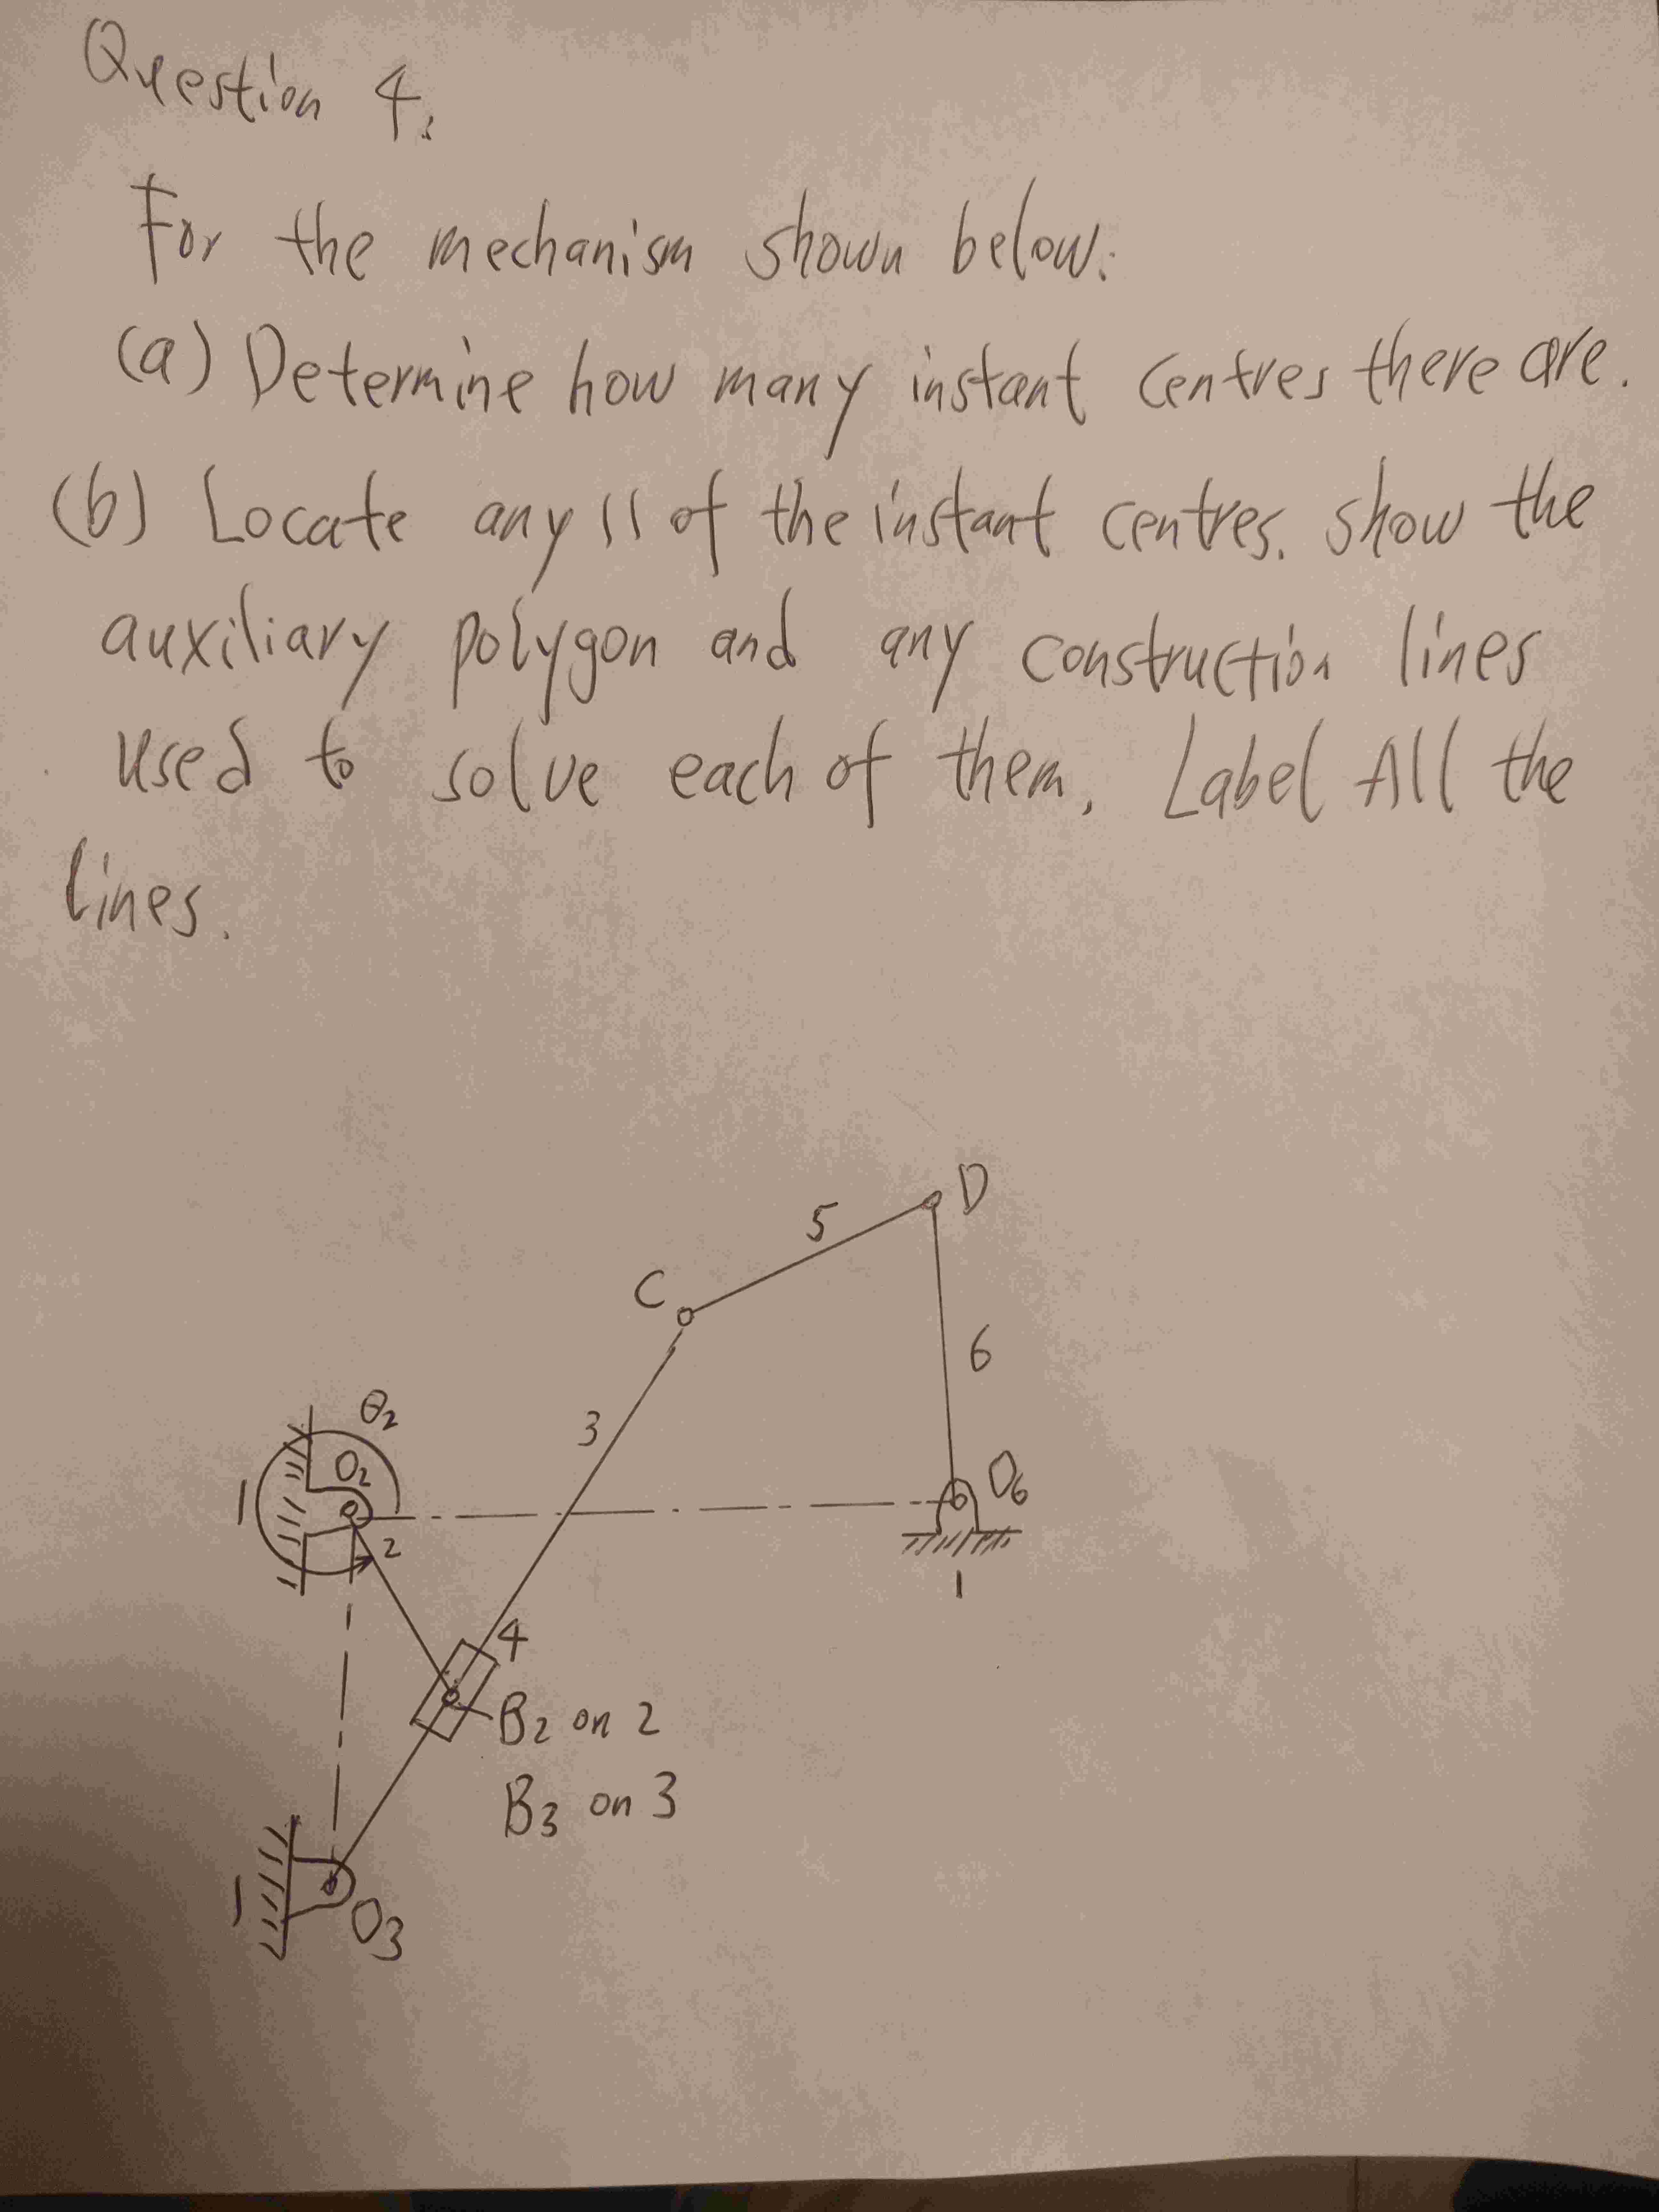 Question 4.
For the mechanism shown below:
(a) Determine how many instant centres there are.
(b) Locate any 11 of the instant centres. show the
auxiliary polygon and any construction lines
used to solve each of them. Label All the
lines.
D
5
C
6
θ2
3
O2
O6
1
2
1
4
B2 on 2
B3 on 3
1
O3